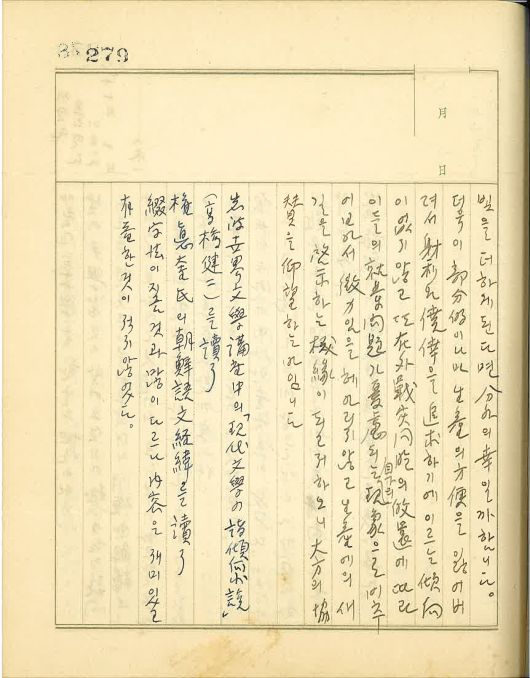 279
月 日
빛을 더하게된다면 分外의 幸일까합니다。
더욱이 部分的이나마 生產의 方便을 잃어버
려서 射利와 僥倖을 追求하기에 이르는 傾向
이없지않고 또在外戰災同胞의 放還에 따라
이들의 就業問題가 憂慮되는 目下의 現象으로 이에 주
어 微力임을 헤아리지않고 生產에의 새
길을 啓示하는 機緣이 되고저하오니 大方의 協
贊을 仰望하는바입니다
岩波世界文學講座中의「現代文學의 諸傾向說」
(高橋健二)을 讀了
權悳奎氏의 朝鮮語文經緯를 讀了
綴字法이 지금것과 많이 다르나 內容은 재미있고
有益한것이 적지않었다。